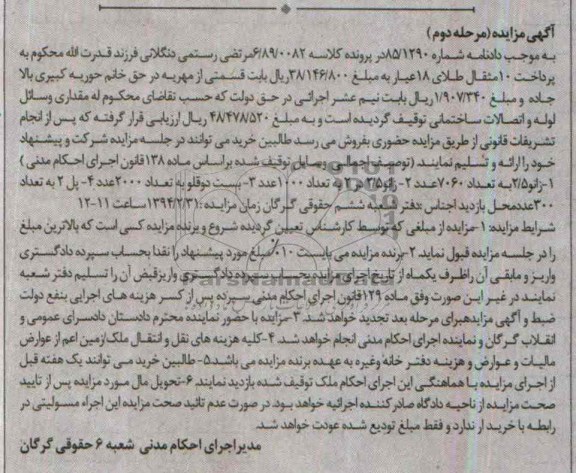 آگهی مزایده (مرحله دوم)
به موجب دادنامه شماره ۸۵/۱۲۹۰ در پرونده کلاسه ۶/۸۹/۰۰۸۲ مرتضی رستمی دنگلانی فرزند قدرت الله محکوم به
پرداخت ۱۰ مثقال طلای ۱۸ عیار به مبلغ ۳۸/۱۴۶/۸۰۰ ریال بابت قسمتی از مهریه در حق خانم حوریه کبیری بالا
جاده و مبلغ ۱/۹۰۷/۳۴۰ ریال بابت نیم عشر اجرائی در حق دولت که حسب تقاضای محکوم له مقداری وسائل
لوله و اتصالات ساختمانی توقیف گردیده است و به مبلغ ۴۸/۴۷۸/۵۲۰ ریال ارزیابی قرار گرفته که پس از انجام
تشریفات قانونی از طریق مزایده حضوری بفروش می رسد طالبین خرید می توانند در جلسه مزایده شرکت و پیشنهاد
خود را ارائه و تسلیم نمایند (توصیف اجمالی وسایل توقیف شده براساس ماده ۱۳۸ قانون اجرای احکام مدنی)
۱-زانو ۲/۵ به تعداد ۷۰۶۰ عدد ۲- زانو به تعداد ۱۰۰۰ عدد ۳- بست دوقلو به تعداد ۲۰۰۰ عدد ۴- پل ۲ به تعداد
۳۰۰ عدد محل بازدید اجناس :دفتر شعبه ششم حقوقی گرگان زمان مزایده :۱۳۹۴/۲/۳۱ ساعت ۱۱-۱۲
شرایط مزایده: ۱-مزایده از مبلغی که توسط کارشناس تعیین گردیده شروع و برنده مزایده کسی است که بالاترین مبلغ
را در جلسه مزایده قبول نماید. ۲-برنده مزایده می بایست ۱۰٪ مبلغ مورد پیشنهاد را نقدا بحساب سپرده دادگستری
واریز و مابقی آن را ظرف یکماه از تاریخ اجرای مزایده بحساب سپرده دادگستری واریز قبض آن را تسلیم دفتر شعبه
نمایند در غیر این صورت وفق ماده ۱۲۹ قانون اجرای احکام مدنی سپرده پس از کسر هزینه های اجرایی بنفع دولت
ضبط و آگهی مزایده برای مرحله بعد تجدید خواهد شد. ۳-مزایده با حضور نماینده محترم دادستان دادسرای عمومی و
انقلاب گرگان و نماینده اجرای احکام مدنی انجام خواهد شد. ۴-کلیه هزینه های نقل و انتقال ملک ازمین اعم از عوارض
مالیات و عوارض و هزینه دفتر خانه وغیره به عهده برنده مزایده می باشد ۵- طالبین خرید می توانند یک هفته قبل
از اجرای مزایده با هماهنگی این اجرای احکام ملک توقیف شده بازدید نمایند. ۶-تحویل مال مورد مزایده پس از تایید
صحت مزایده از ناحیه دادگاه صادر کننده اجرائیه خواهد بود. در صورت عدم تائید صحت مزایده این اجراء مسولیتی در
رابطه با خریدار ندارد و فقط مبلغ تودیع شده عودت خواهد شد.
مدیر اجرای احکام مدنی شعبه ۶ حقوقی گرگان